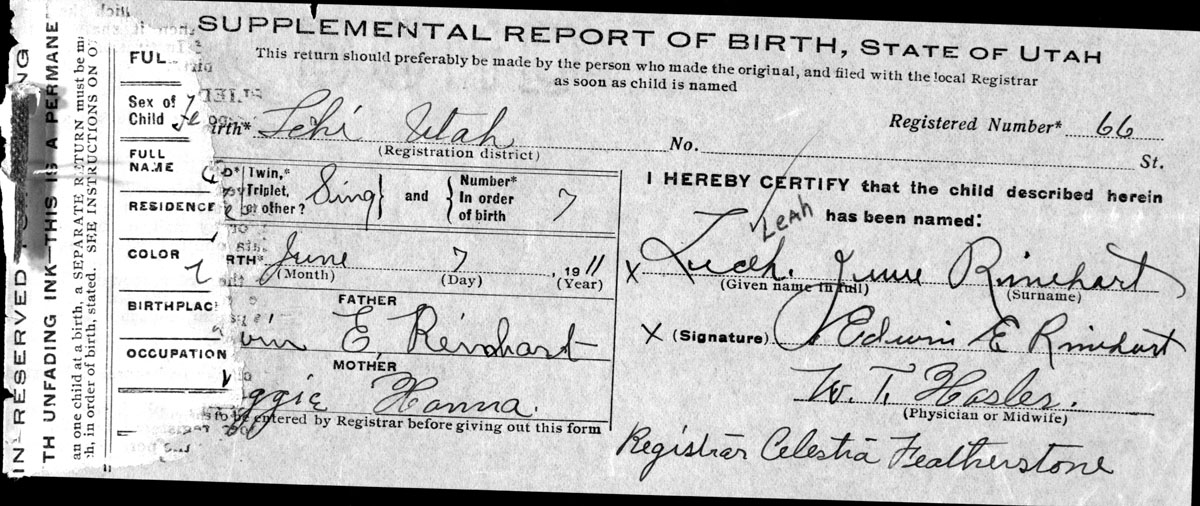 SUPPLEMENTAL REPORT OF BIRTH, STATE OF UTAH
This return should preferably be made by the person who made the original, and filed with the local Registrar
as soon as child is named
IN RESERVED
TH UNFADING INK—THIS IS A PERMANE
an one child at a birth, a SEPARATE RETURN must be m
h, in order of birth, stated. SEE INSTRUCTIONS ON O
FUL
Sex of
Child Fe
FULL
NAME
RESIDENCE
COLOR
BIRTHPLAC
OCCUPATION
irth* Lehi Utah
(Registration district)
Registered Number* 66
No. St.
Twin,*
Triplet,
or other? Sing and Number*
In order
of birth 7
RTH* June 7, 1911
(Month) (Day) (Year)
FATHER
win E. Reinhart
MOTHER
ggie Hanna.
to be entered by Registrar before giving out this form
I HEREBY CERTIFY that the child described herein
has been named:
Leah
X June Rinehart
(Given name in full) (Surname)
X (Signature) Edwin E Rinehart
W. T. Hasler.
(Physician or Midwife)
Registrar Celestia Featherstone